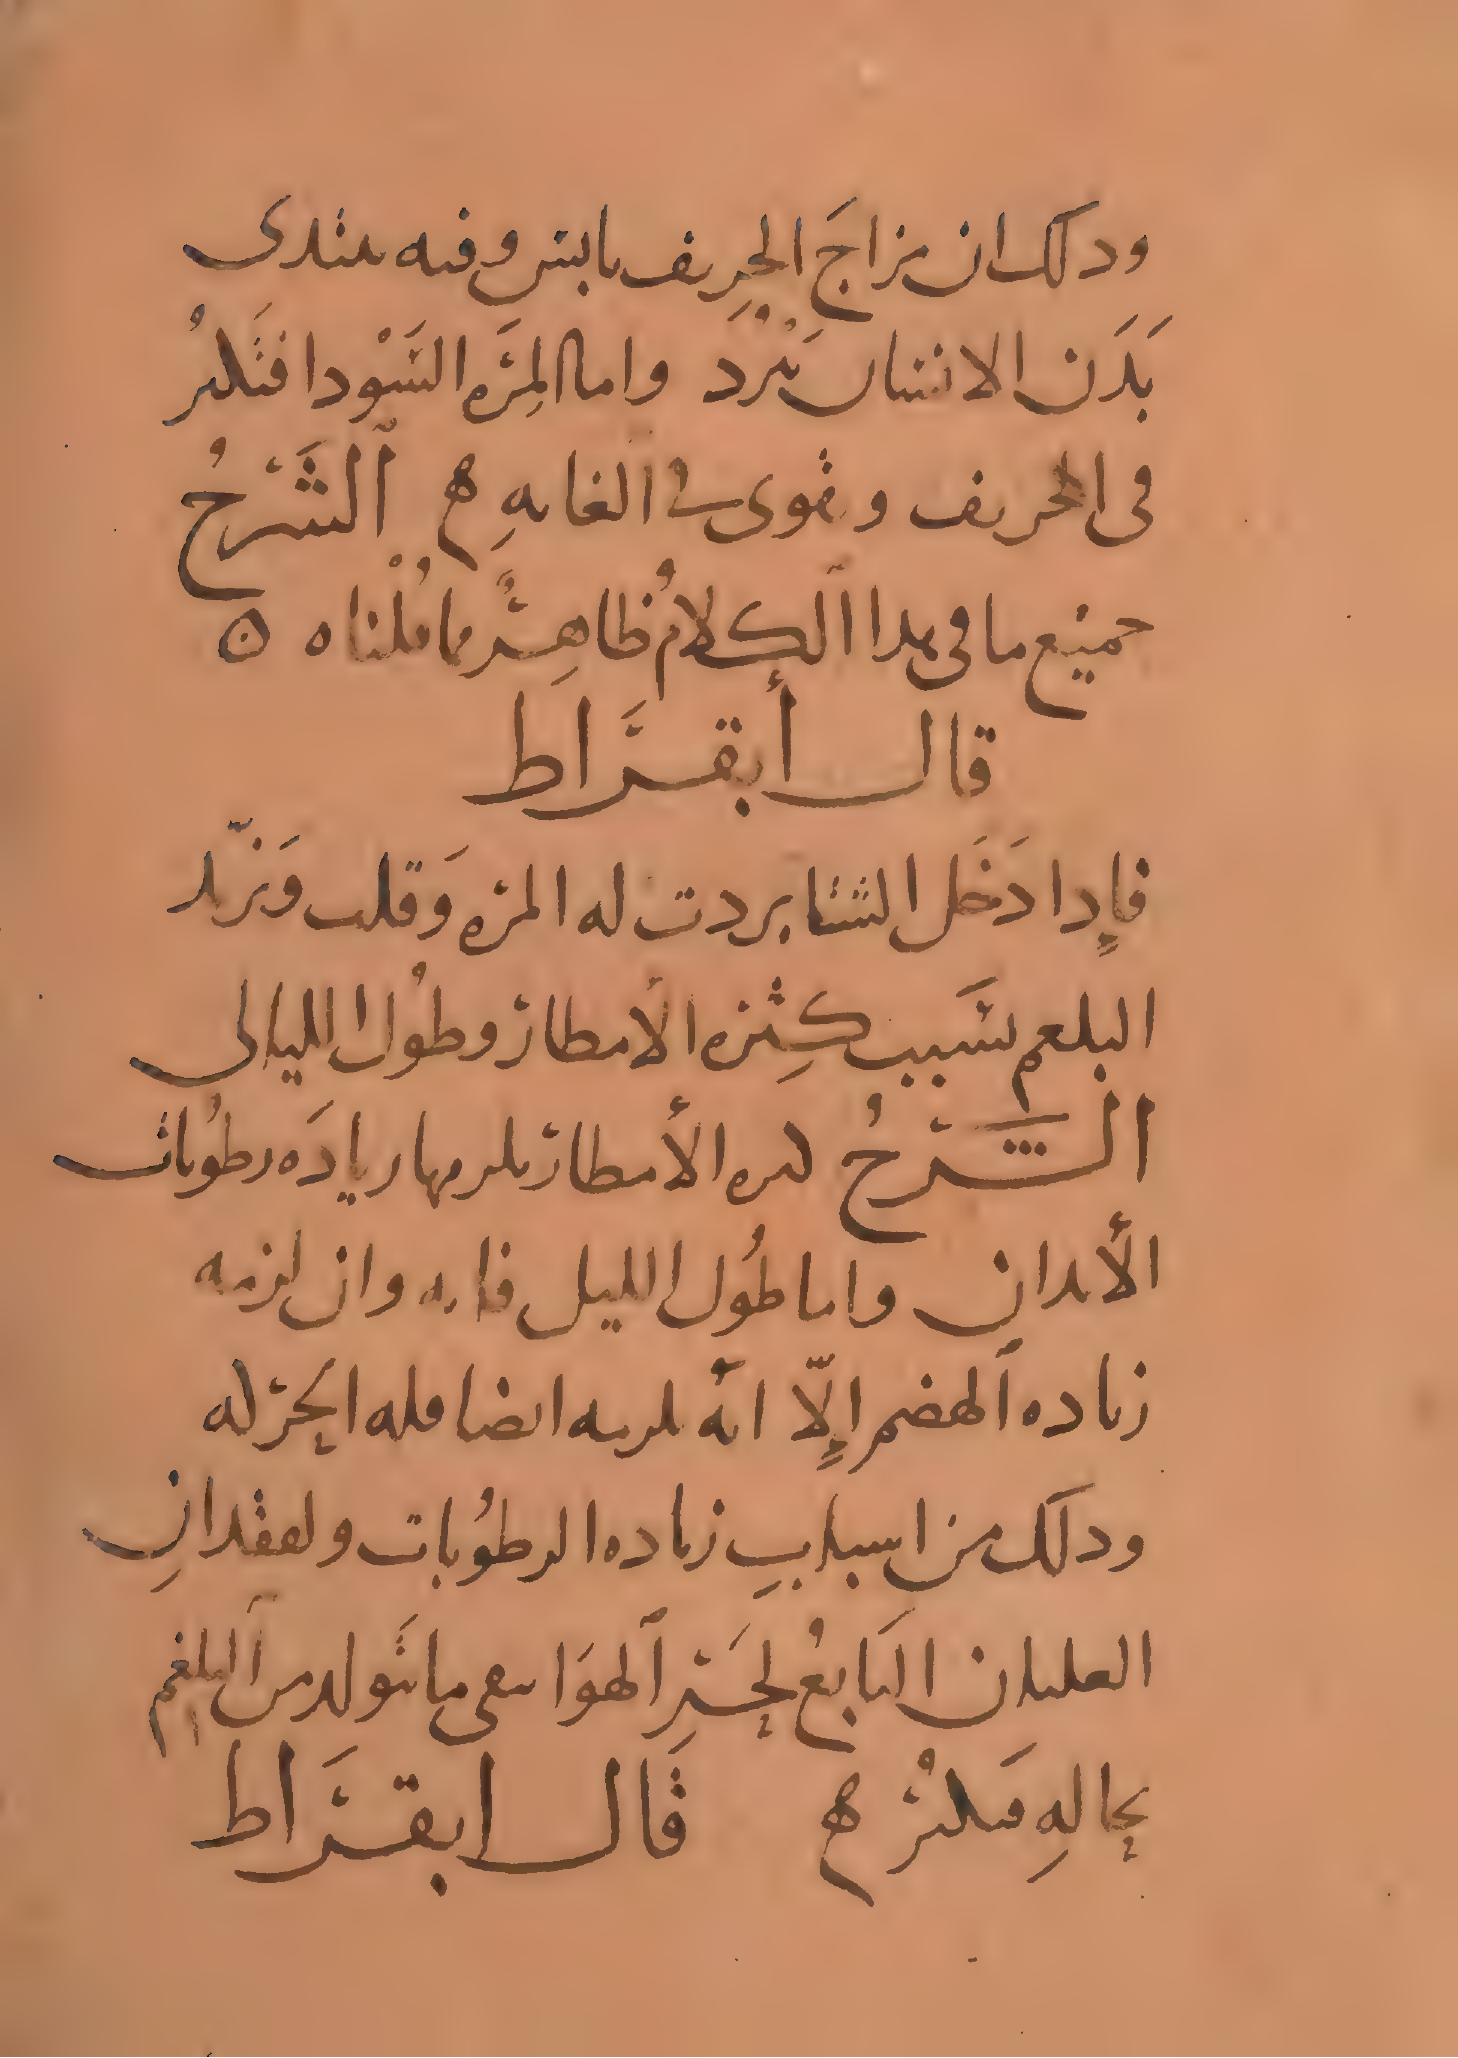 ودلك ان مزاجَ الخرِيف يابس وفيه يبتدى
بَدَن الانسان يَبْرُد واما المِرَّه السَوْدا فتَكثرُ
فى الخريف وتقوى في الغايهِ ه الشَرْحُ
جميع ما فى هدا الكلامُ ظاهِرٌ مما قُلْناه ه
قال أبقرَاط
فاِدا دَخَل الشتا بردت له المره وَقلت وَتزيد
البلغم بسَبب كِثره الأمطار وطوُل الليالى
الشرحُ كثره الأمطار يلزمها زيادَه رطوُبات
الأبدان واما طوُل الليل فانه وان لزمه
زياده الهضم اِلّا انه يلزمه ايضا قله الحركه
ودلك من اسبابِ زياده الرطوُبات ولفقدانِ
الغليان التابعُ لحَرِ الهوَا يبقى ما يتَولد من البلغم
بحالهِ فيَكثرُ ه قال ابقرَاط